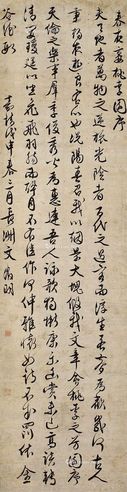 春夜宴桃李園序
夫天地者萬物之逆旅光陰者百代之過客而浮生若夢為歡幾何古人
秉燭夜遊良有以也況陽春召我以烟景大塊假我以文章會桃李之芳園序
天倫之樂事群季俊秀皆為惠連吾人詠歌獨慚康樂幽賞未已高談轉
清開瓊筵以坐花飛羽觴而醉月不有佳作何伸雅懷如詩不成罰依金
谷酒數
嘉靖戊申春三月長洲文徵明